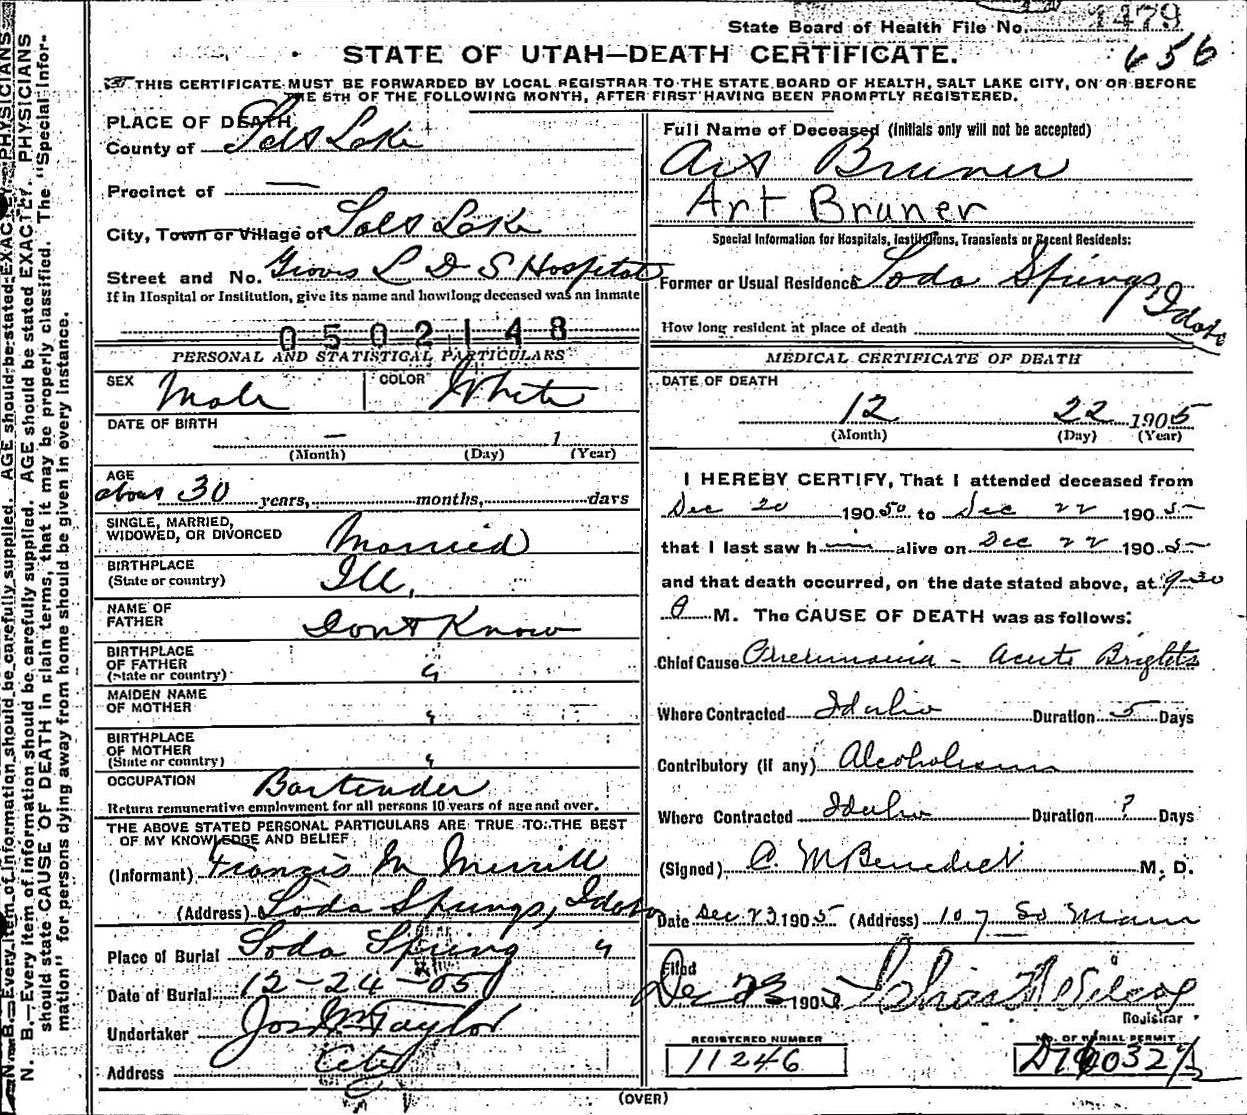 State Board of Health File No. 1479
656
STATE OF UTAH—DEATH CERTIFICATE.
THIS CERTIFICATE MUST BE FORWARDED BY LOCAL REGISTRAR TO THE STATE BOARD OF HEALTH, SALT LAKE CITY, ON OR BEFORE
THE 5TH OF THE FOLLOWING MONTH, AFTER FIRST HAVING BEEN PROMPTLY REGISTERED.
N. B.—Every item of information should be carefully supplied. AGE should be stated EXACTLY. PHYSICIANS
N. B.—Every item of information should be carefully supplied. AGE should be stated EXACTLY. PHYSICIANS
should state CAUSE OF DEATH in plain terms, that it may be properly classified. The "Special Infor-
mation" for persons dying away from home should be given in every instance.
PLACE OF DEATH
County of Salt Lake
Precinct of —
City, Town or Village of Salt Lake
Street and No. Groves L D S Hospital
If in Hospital or Institution, give its name and how long deceased was an inmate
0502148
PERSONAL AND STATISTICAL PARTICULARS
SEX Male COLOR White
DATE OF BIRTH
— 1
(Month) (Day) (Year)
AGE
about 30 years, months, days
SINGLE, MARRIED,
WIDOWED, OR DIVORCED Married
BIRTHPLACE
(State or country) Ill.
NAME OF
FATHER Dont Know
BIRTHPLACE
OF FATHER
(State or country) "
MAIDEN NAME
OF MOTHER "
BIRTHPLACE
OF MOTHER
(State or country) "
OCCUPATION Bartender
Return remunerative employment for all persons 10 years of age and over.
THE ABOVE STATED PERSONAL PARTICULARS ARE TRUE TO THE BEST
OF MY KNOWLEDGE AND BELIEF
(Informant) Francis M Merrill
(Address) Soda Springs, Idaho
Place of Burial Soda Spring "
Date of Burial 12-24-05
Undertaker Jos Wm Taylor
Address City
Full Name of Deceased (Initials only will not be accepted)
Art Bruner
Art Bruner
Special Information for Hospitals, Institutions, Transients or Recent Residents:
Former or Usual Residence Soda Springs, Idaho
How long resident at place of death
MEDICAL CERTIFICATE OF DEATH
DATE OF DEATH
12 22 1905
(Month) (Day) (Year)
I HEREBY CERTIFY, That I attended deceased from
Dec 20 190 to Dec 22 1905
that I last saw him alive on Dec 22 1905
and that death occurred, on the date stated above, at 9-30
A M. The CAUSE OF DEATH was as follows:
Chief Cause Pneumonia - Acute Brights
Where Contracted Idaho Duration 5 Days
Contributory (if any) Alcoholism
Where Contracted Idaho Duration ? Days
(Signed) C. M Benedict M. D.
Date Dec 23 1905 (Address) 107 So Main
Filed
Dec 23 190
Registrar
REGISTERED NUMBER
11246
NO. OF BURIAL PERMIT
(OVER)